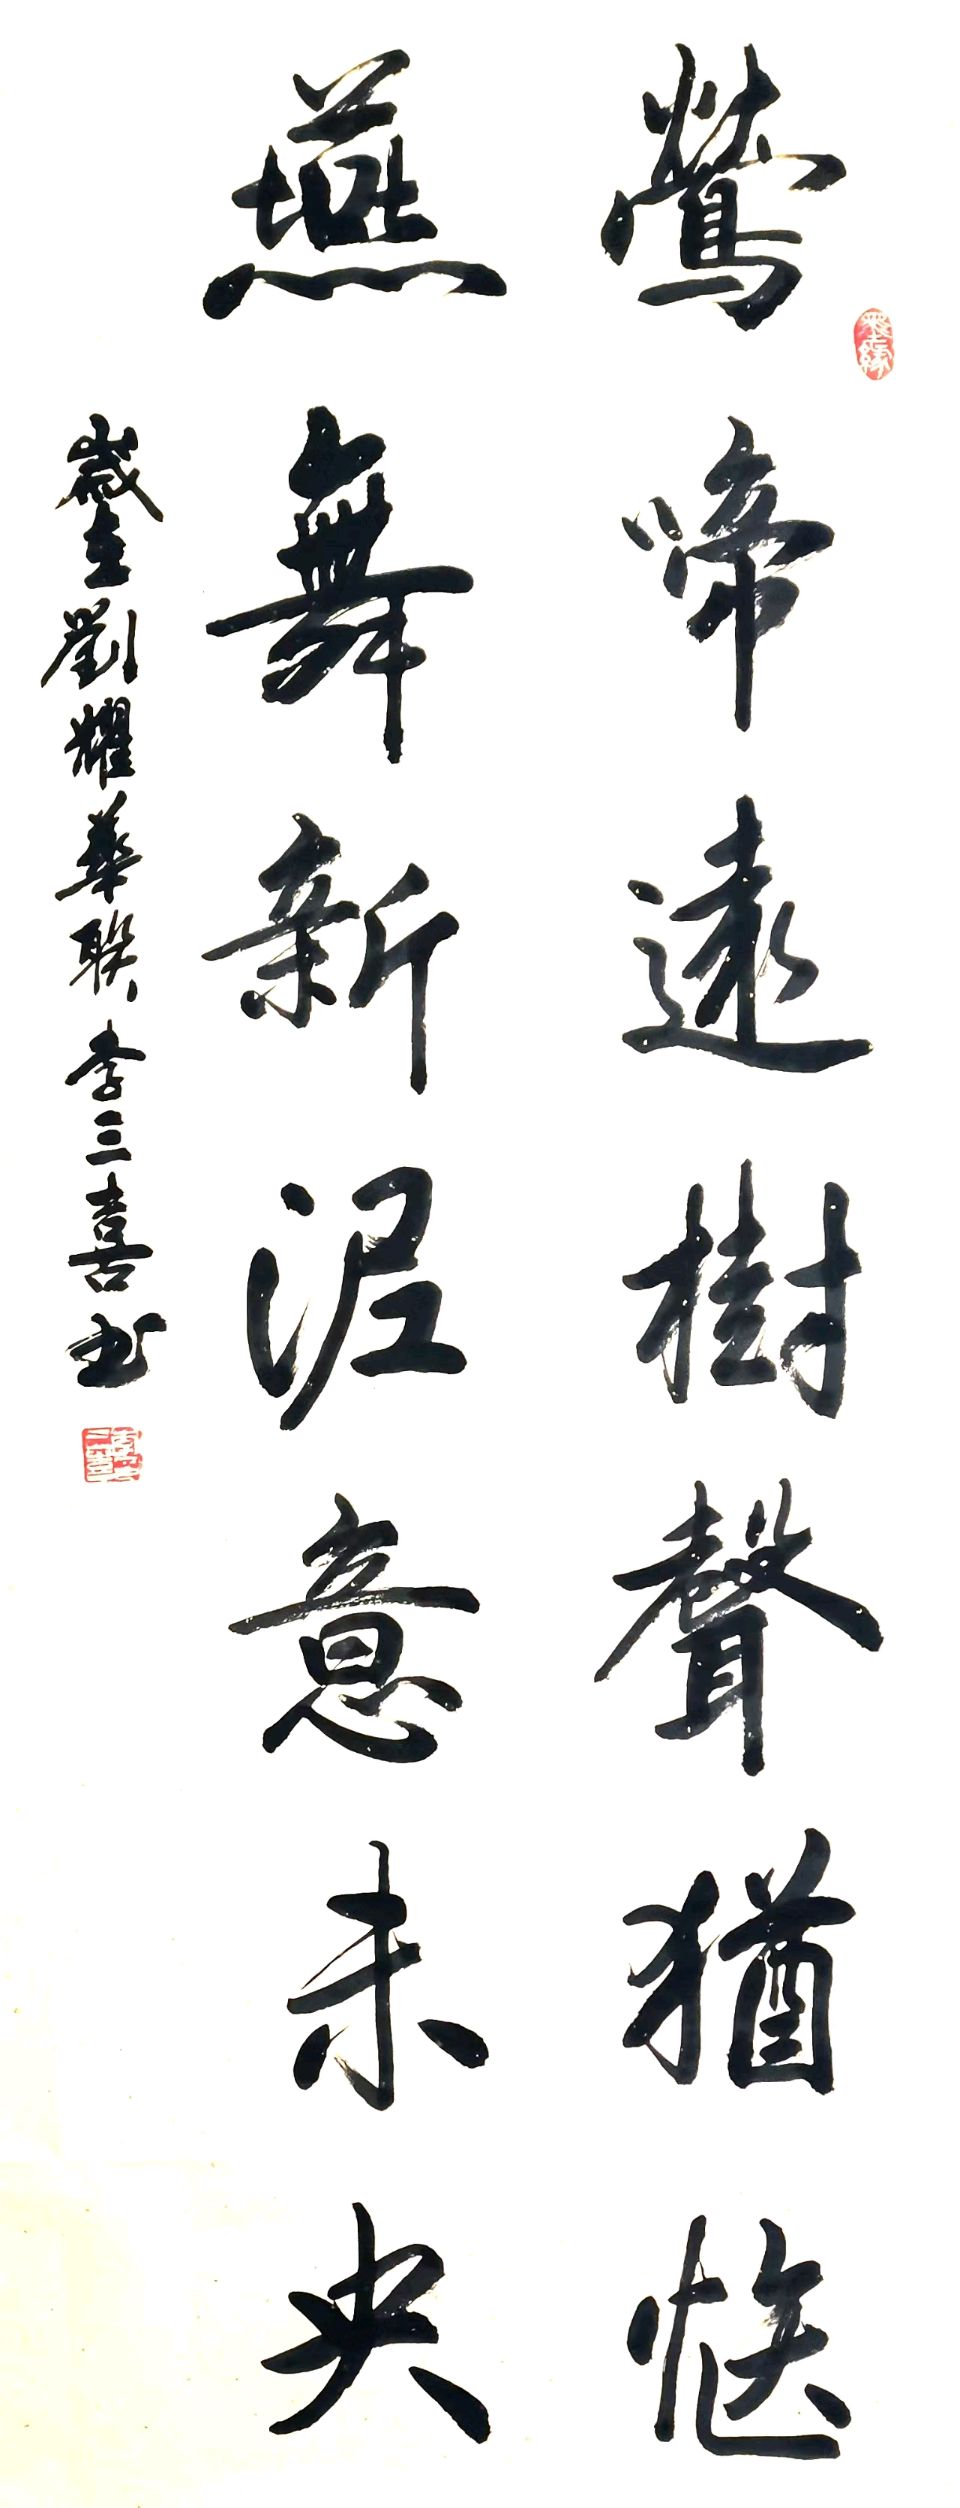 鶯啼遠樹聲猶愜
燕舞新泥意未央
劉耀華聯李三喜书